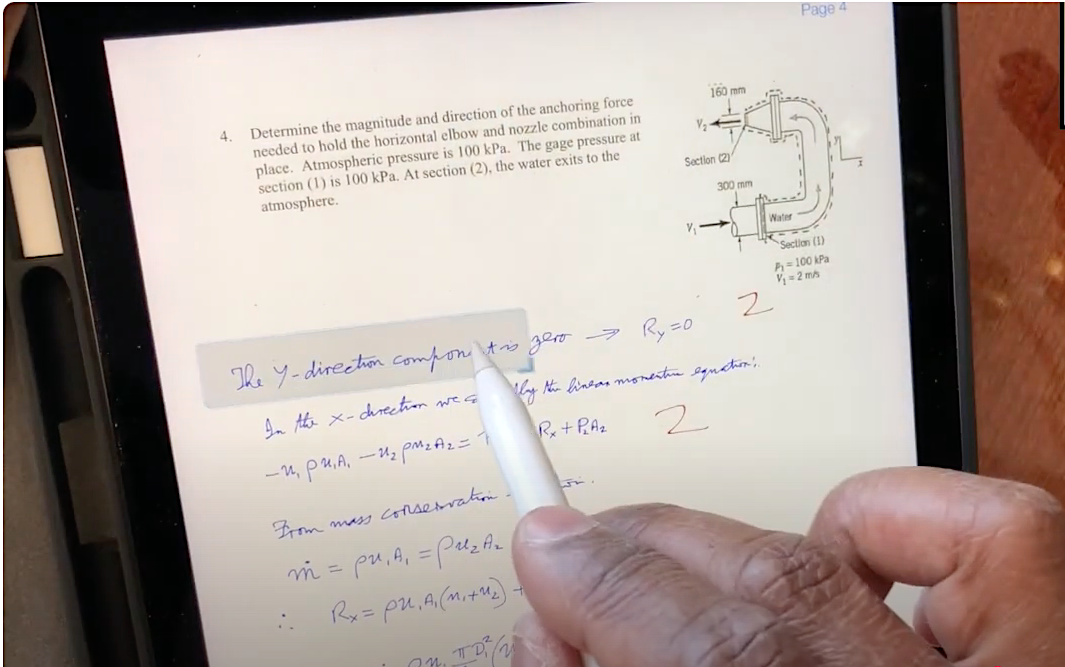 Page 4
4. Determine the magnitude and direction of the anchoring force
needed to hold the horizontal elbow and nozzle combination in
place. Atmospheric pressure is 100 kPa. The gage pressure at
section (1) is 100 kPa. At section (2), the water exits to the
atmosphere.
160 mm
V₂
Section (2)
300 mm
V₁
Water
Section (1)
p₁ = 100 kPa
V₁ = 2 m/s
y
x
The y-direction component is zero → Ry=0
2
In the x-direction we the linear momentum equation:
-u₁ρu₁A₁ - u₂ρu₂A₂ = Rx + P₂A₂
2
From mass conservation
ṁ = ρu₁A₁ = ρu₂A₂
∴ Rx = ρu₁A₁(u₁+u₂) +
ρu₁ πD₁²